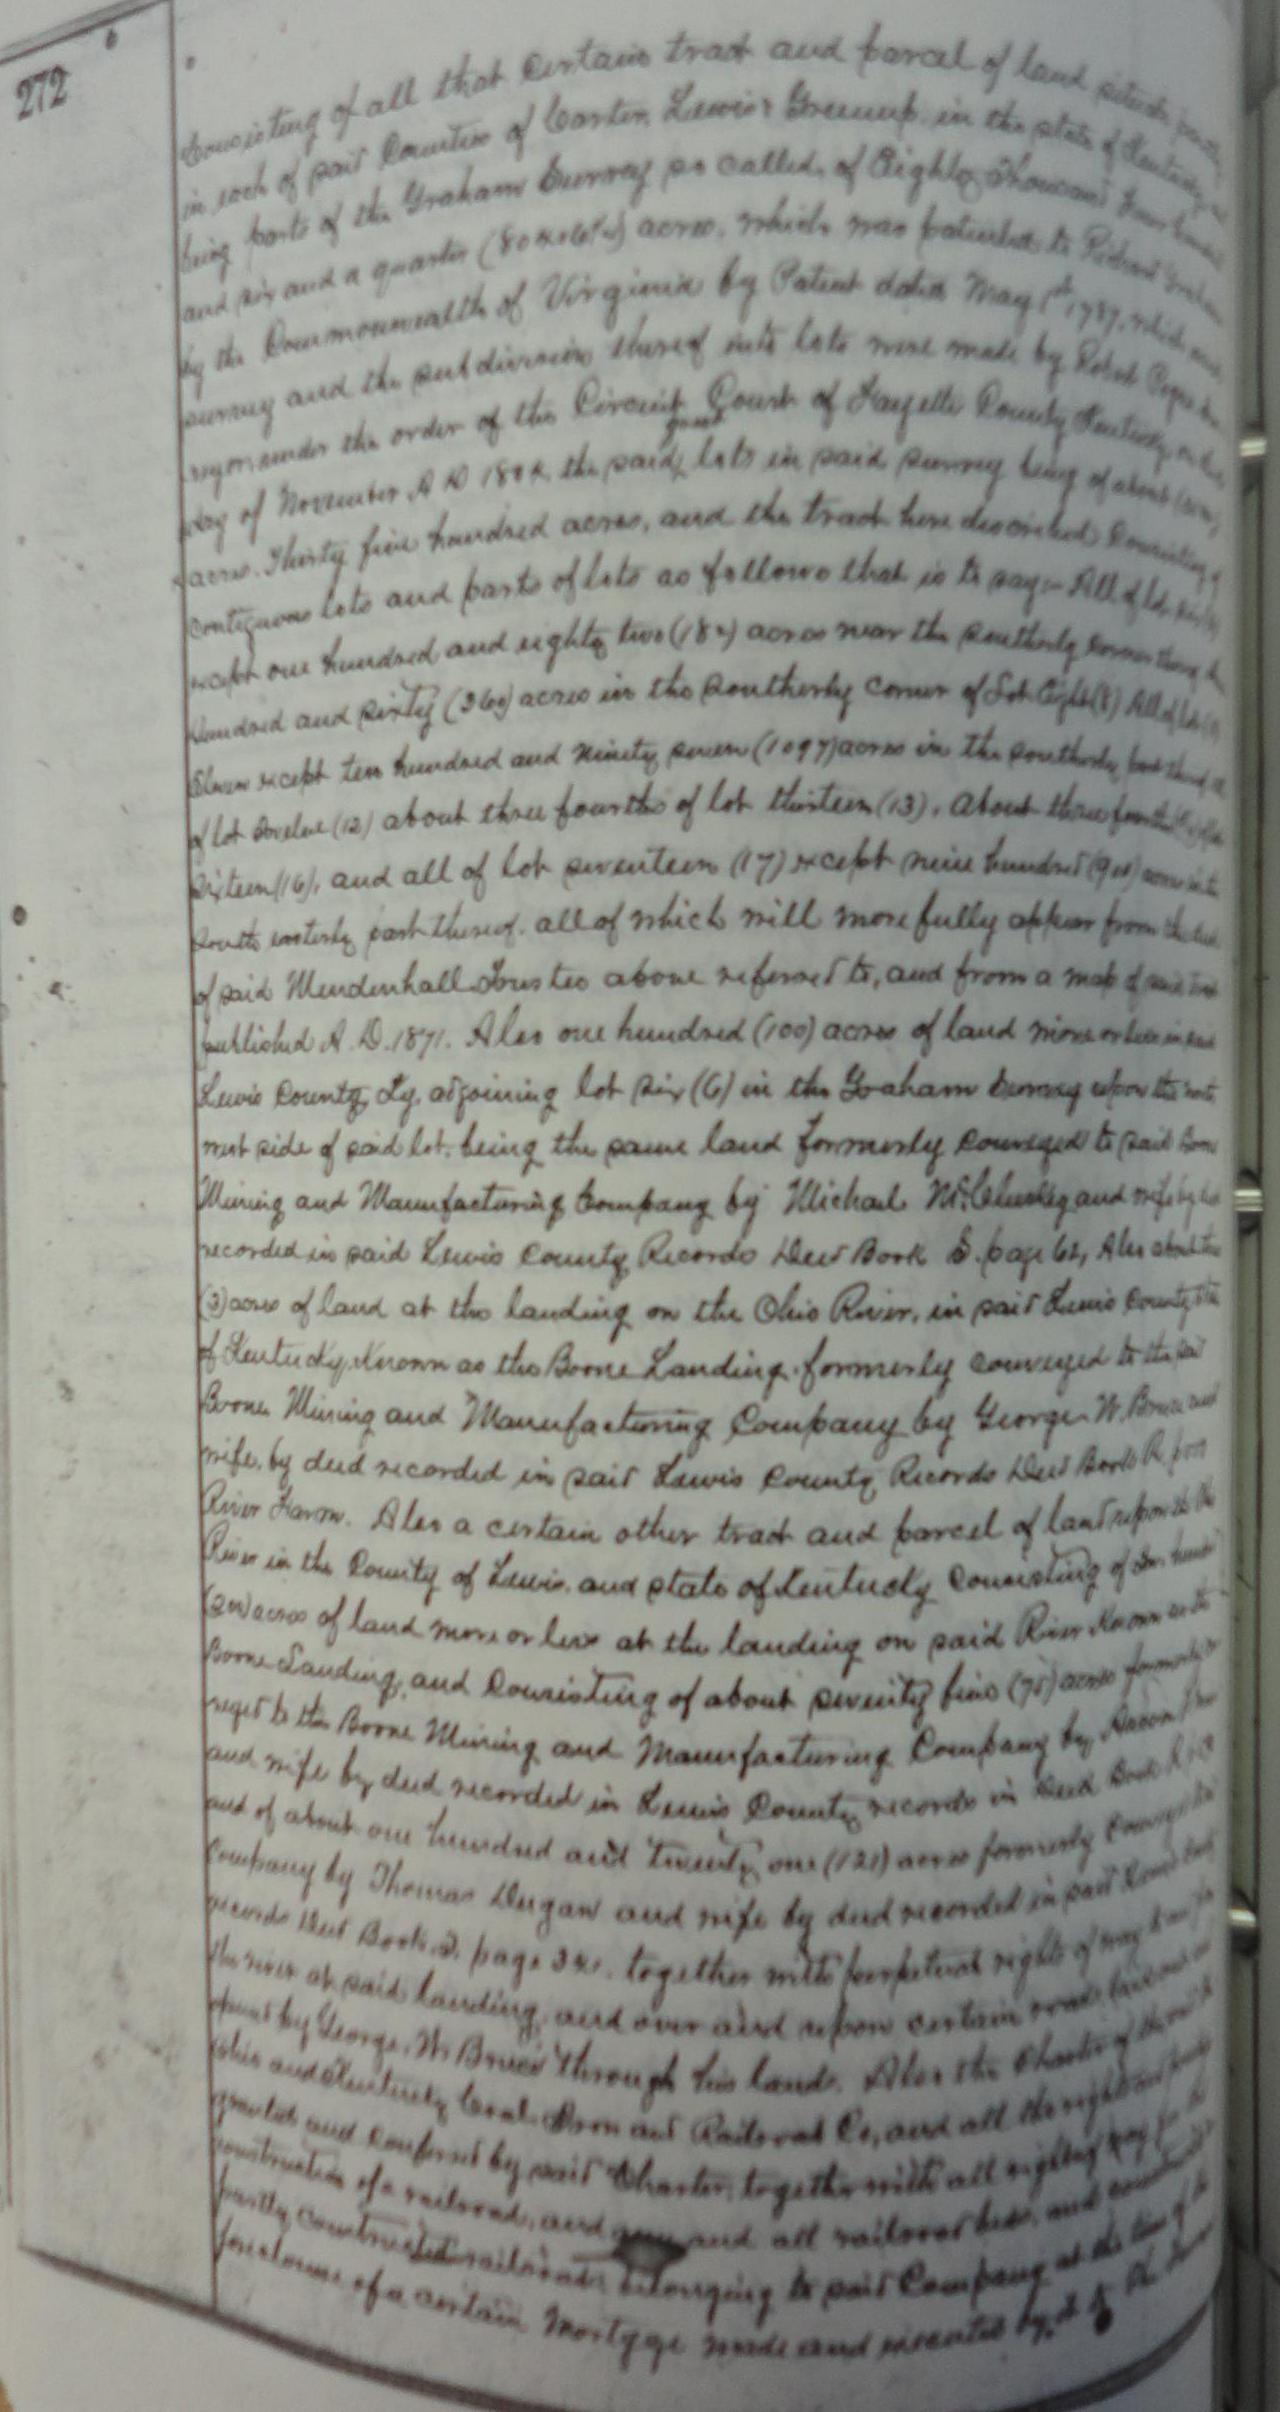 272
Consisting of all that Certain tract and parcel of land situate partly
in each of said Counties of Carter, Lewis & Greenup, in the state of Kentucky
being parts of the Graham Survey so called, of Eighty Thousand Four hundred
and six and a quarter (80406¼) acres, which was patented to Richard Graham
by the Commonwealth of Virginia by Patent dated May 1st 1787, which said
survey and the subdivision thereof into lots were made by Robert
under the order of the Circuit Court of Fayette County Kentucky, on the
day of November A D 1804, the said lots in said survey being of about
acres. Thirty five hundred acres, and the tract here described Consisting of
contiguous lots and parts of lots as follows that is to say:- All of lot
except one hundred and eighty two (182) acres near the southerly corner thereof
hundred and sixty (360) acres in the southerly corner of Lot Eight (8) All of lot
Eleven except ten hundred and ninety seven (1097) acres in the southerly part thereof
of lot twelve (12) about three fourths of lot thirteen (13), about three fourths
sixteen (16), and all of lot seventeen (17) except nine hundred (900) acres in the
South easterly part thereof. all of which will more fully appear from the deed
of said Mendenhall Trustee above referred to, and from a map of said
published A. D. 1871. Also one hundred (100) acres of land more or less in said
Lewis County, Ky, adjoining lot six (6) in the Graham Survey upon the north
west side of said lot, being the same land formerly conveyed to said Boone
Mining and Manufacturing Company by Michael McCluskey and wife by deed
recorded in said Lewis County Records Deed Book S. page 62, Also about three
(3) acres of land at the landing on the Ohio River, in said Lewis County
of Kentucky, Known as the Boone Landing, formerly conveyed to the said
Boone Mining and Manufacturing Company by George W. Bruce and
wife, by deed recorded in said Lewis County Records Deed Book R
River Farm. Also a certain other tract and parcel of land upon the Ohio
River in the County of Lewis, and state of Kentucky Consisting of two hundred
(200) acres of land more or less at the landing on said River Known as the
Boone Landing, and Consisting of about seventy five (75) acres formerly
to the Boone Mining and Manufacturing Company by
and wife by deed recorded in Lewis County records in Deed Book
and of about one hundred and twenty one (121) acres formerly Conveyed
Company by Thomas Dugan and wife by deed recorded in said Lewis County
records Deed Book page together with perpetual rights of way to and from
the river at said landing, and over and upon certain roads laid out
by George W Bruce through his lands. Also the Charter of the
Ohio and Kentucky Coal Iron and Railroad Co, and all the rights and
granted and Conferred by said Charter, together with all rights of way for the
construction of a railroad, and and all railroad beds, and
partly constructed railroads belonging to said Company at the time of the
foreclosure of a certain Mortgage made and executed by it to